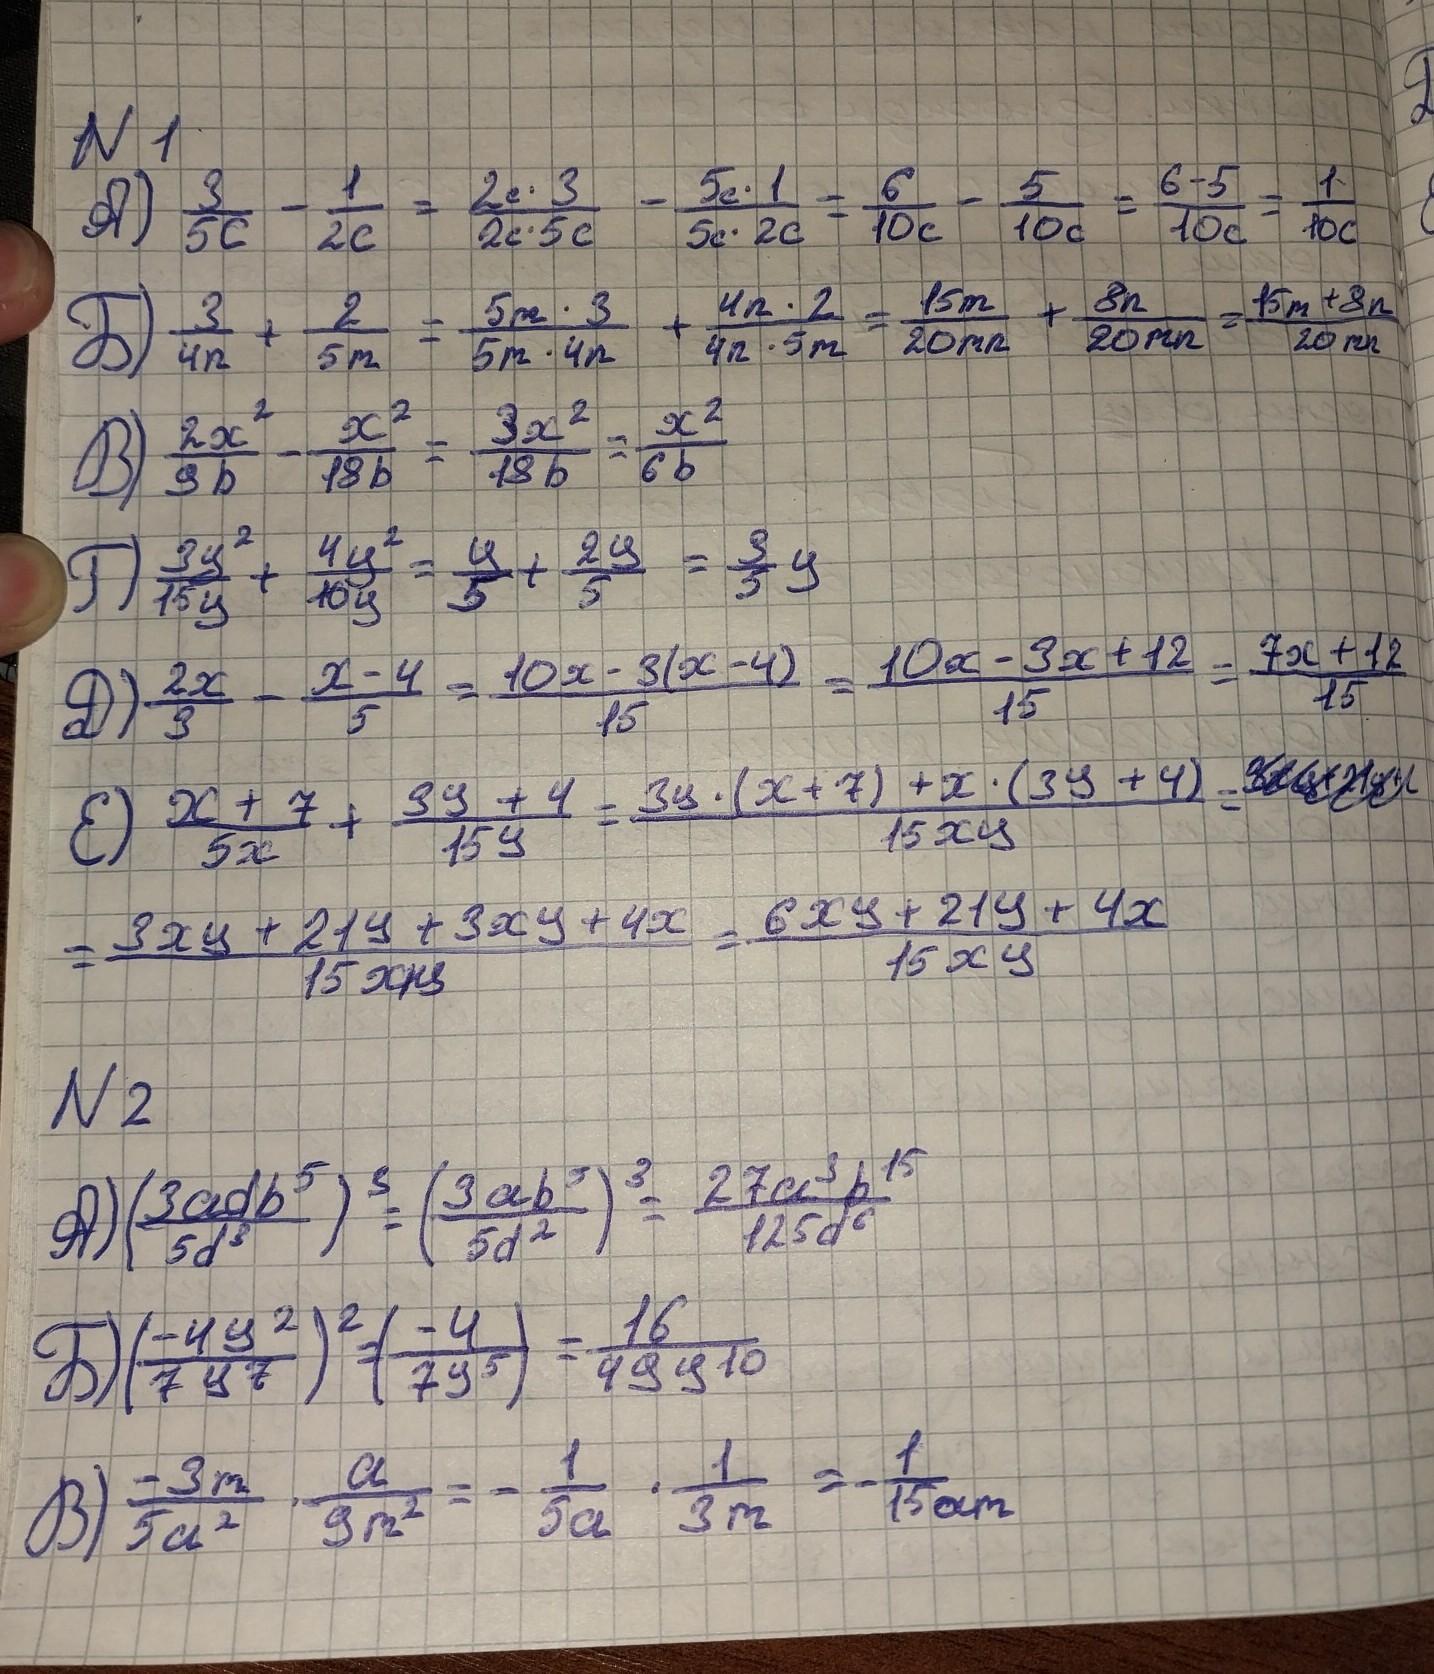 N 1
А) 3/5c - 1/2c = 2c·3/2c·5c - 5c·1/5c·2c = 6/10c - 5/10c = 6-5/10c = 1/10c
Б) 3/4n + 2/5m = 5m·3/5m·4n + 4n·2/4n·5m = 15m/20mn + 8n/20mn = 15m+8n/20mn
В) 2x²/9b - x²/18b = 3x²/18b = x²/6b
Г) 3y²/15y + 4y²/10y = y/5 + 2y/5 = 3/5 y
Д) 2x/3 - x-4/5 = 10x-3(x-4)/15 = 10x-3x+12/15 = 7x+12/15
Е) x+7/5x + 3y+4/15y = 3y·(x+7)+x·(3y+4)/15xy =
= 3xy+21y+3xy+4x/15xy = 6xy+21y+4x/15xy
N 2
А) (3adb⁵/5d³)³ = (3ab⁵/5d²)³ = 27a³b¹⁵/125d⁶
Б) (-4y²/7y⁷)² = (-4/7y⁵) = 16/49y¹⁰
В) -3m/5a² · a/9m² = - 1/5a · 1/3m = - 1/15am